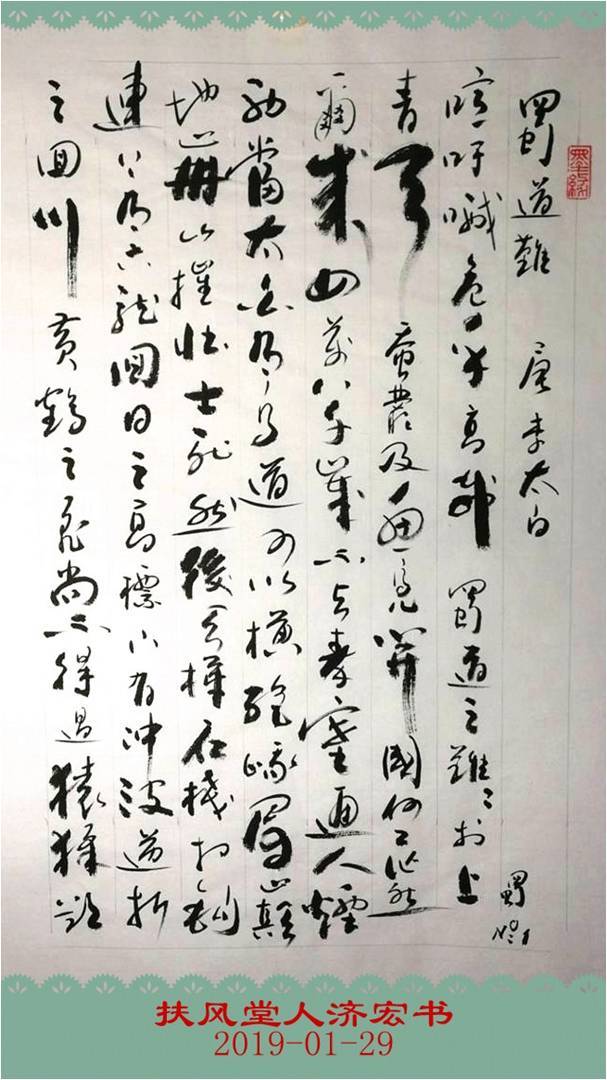 蜀道難 唐李太白
噫吁嚱危乎高哉 蜀道之難〻於上
青天 蚕叢及魚鳧開國何茫然
爾來四萬八千歲不与秦塞通人煙
西當太白有鳥道可以横絶峨眉巔
地崩山摧壮士死然後天梯石棧相鈎
連上有六龍回日之高標下有冲波逆折
之回川 黄鶴之飛尚不得過猿猱欲
扶风堂人济宏书
2019-01-29